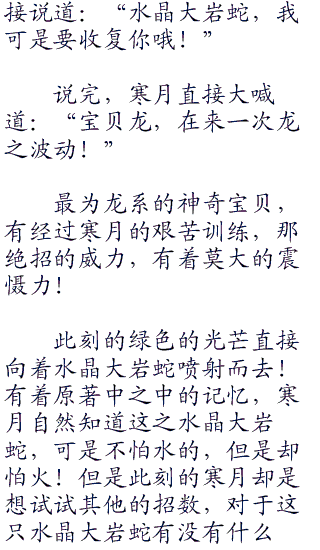 接说道：“水晶大岩蛇，我
可是要收复你哦！”
说完，寒月直接大喊
道：“宝贝龙，在来一次龙
之波动！”
最为龙系的神奇宝贝，
有经过寒月的艰苦训练，那
绝招的威力，有着莫大的震
慑力！
此刻的绿色的光芒直接
向着水晶大岩蛇喷射而去！
有着原著中之中的记忆，寒
月自然知道这之水晶大岩
蛇，可是不怕水的，但是却
怕火！但是此刻的寒月却是
想试试其他的招数，对于这
只水晶大岩蛇有没有什么